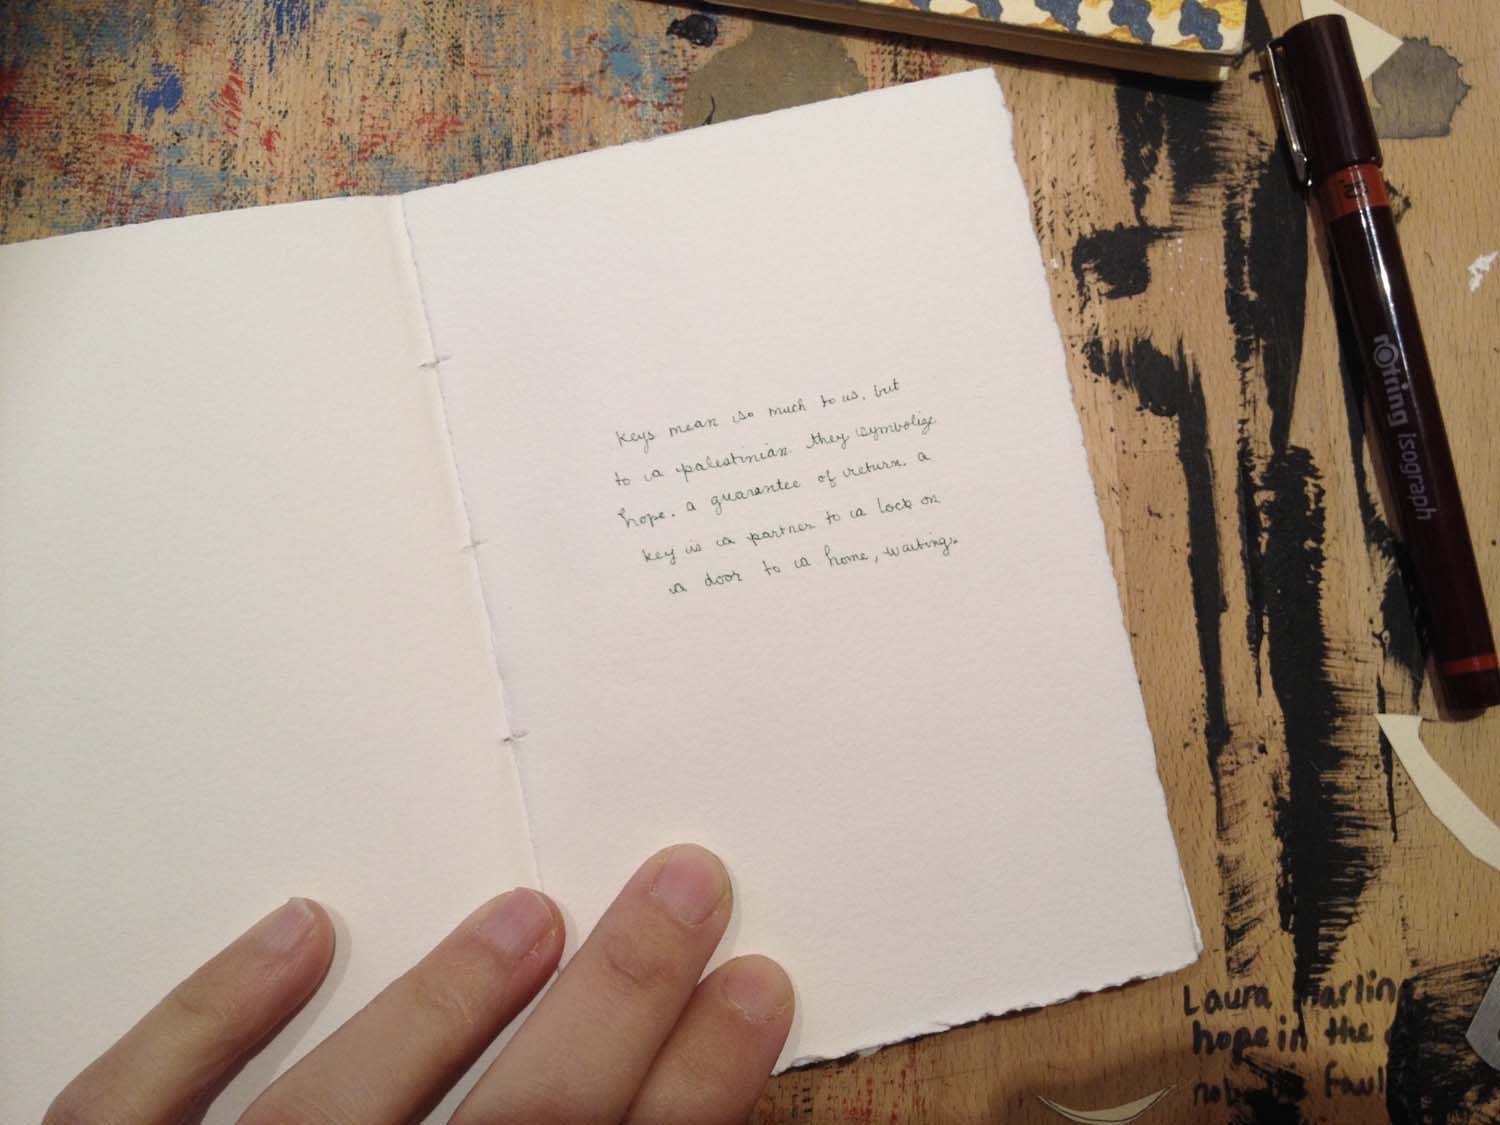 keys mean so much to us. but
to a palestinian they symbolize
hope. a guarantee of return. a
key is a partner to a lock on
a door to a home, waiting.
rOtring isograph
Laura Marling
hope in the